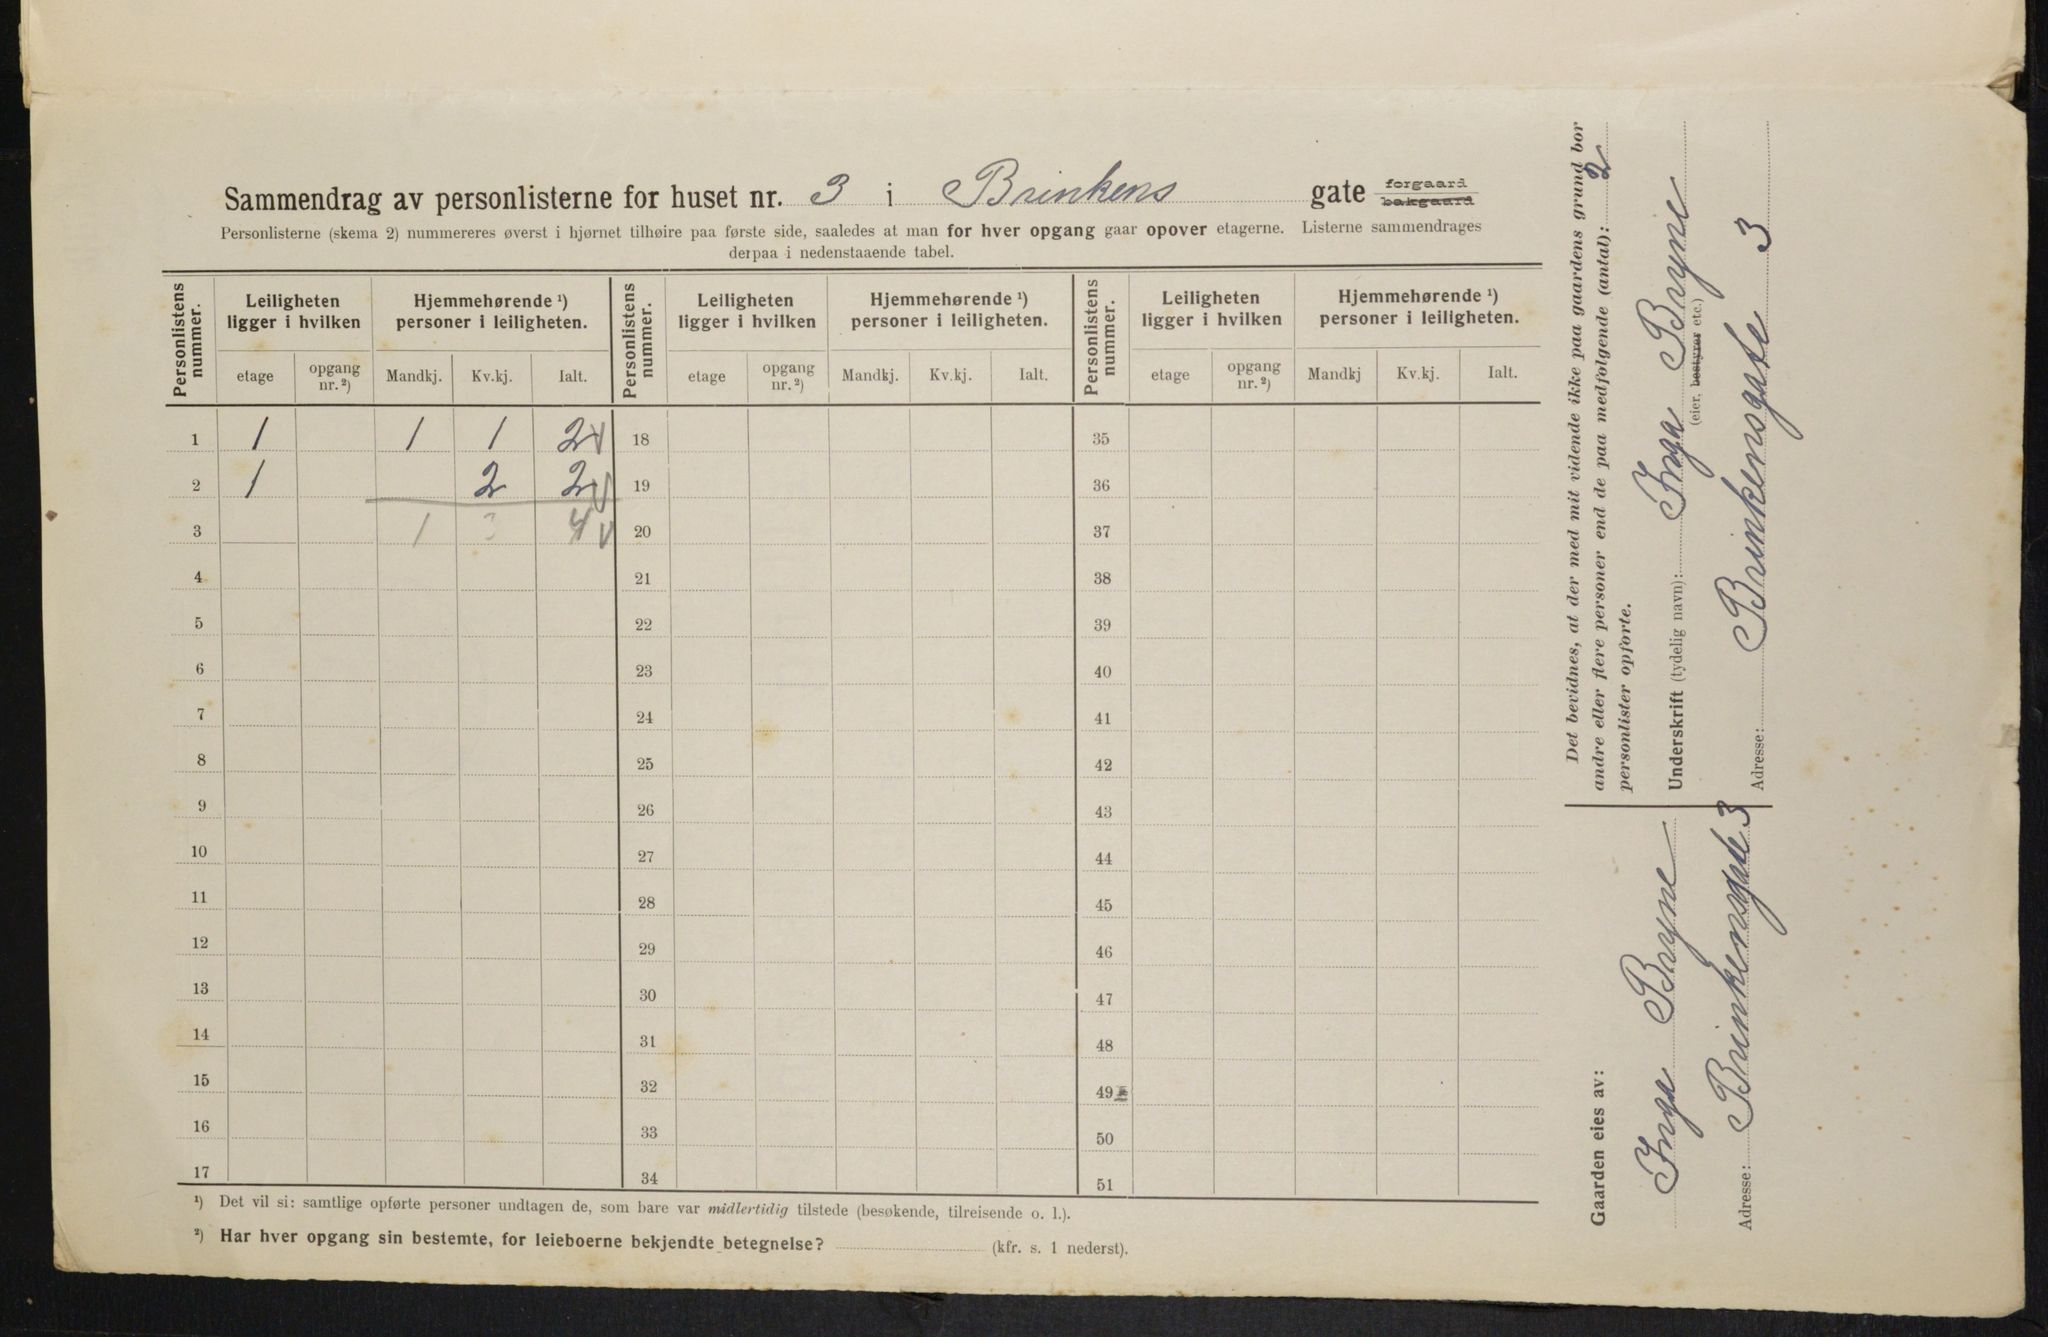 Sammendrag av personlisterne for huset nr. 3 i Brinkens gate forgaard
bakgaard
Personlisterne (skema 2) nummereres øverst i hjørnet tilhøire paa første side, saaledes at man for hver opgang gaar opover etagerne. Listerne sammendrages
derpaa i nedenstaaende tabel.
Personlistens nummer. Leiligheten ligger i hvilken Hjemmehørende ¹) personer i leiligheten. Personlistens nummer. Leiligheten ligger i hvilken Hjemmehørende ¹) personer i leiligheten. Personlistens nummer. Leiligheten ligger i hvilken Hjemmehørende ¹) personer i leiligheten.
etage opgang nr. ²) Mandkj. Kv.kj. Ialt. etage opgang nr. ²) Mandkj. Kv.kj. Ialt. etage opgang nr. ²) Mandkj Kv.kj. Ialt.
1 1 1 1 2 18 35
2 1 2 2 19 36
3 1 3 4 20 37
4 21 38
5 22 39
6 23 40
7 24 41
8 25 42
9 26 43
10 27 44
11 28 45
12 29 46
13 30 47
14 31 48
15 32 49
16 33 50
17 34 51
¹) Det vil si: samtlige opførte personer undtagen de, som bare var midlertidig tilstede (besøkende, tilreisende o. l.).
²) Har hver opgang sin bestemte, for leieboerne bekjendte betegnelse? (kfr. s. 1 nederst).
Det bevidnes, at der med mit vidende ikke paa gaardens grund bor
andre eller flere personer end de paa medfolgende (antal): 2
personlister opforte.
Underskrift (tydelig navn): Inga Bryne
(eier, bestyrer etc.)
Adresse: Brinkensgate 3
Gaarden eies av:
Inga Bryne
Adresse: Brinkensgate 3